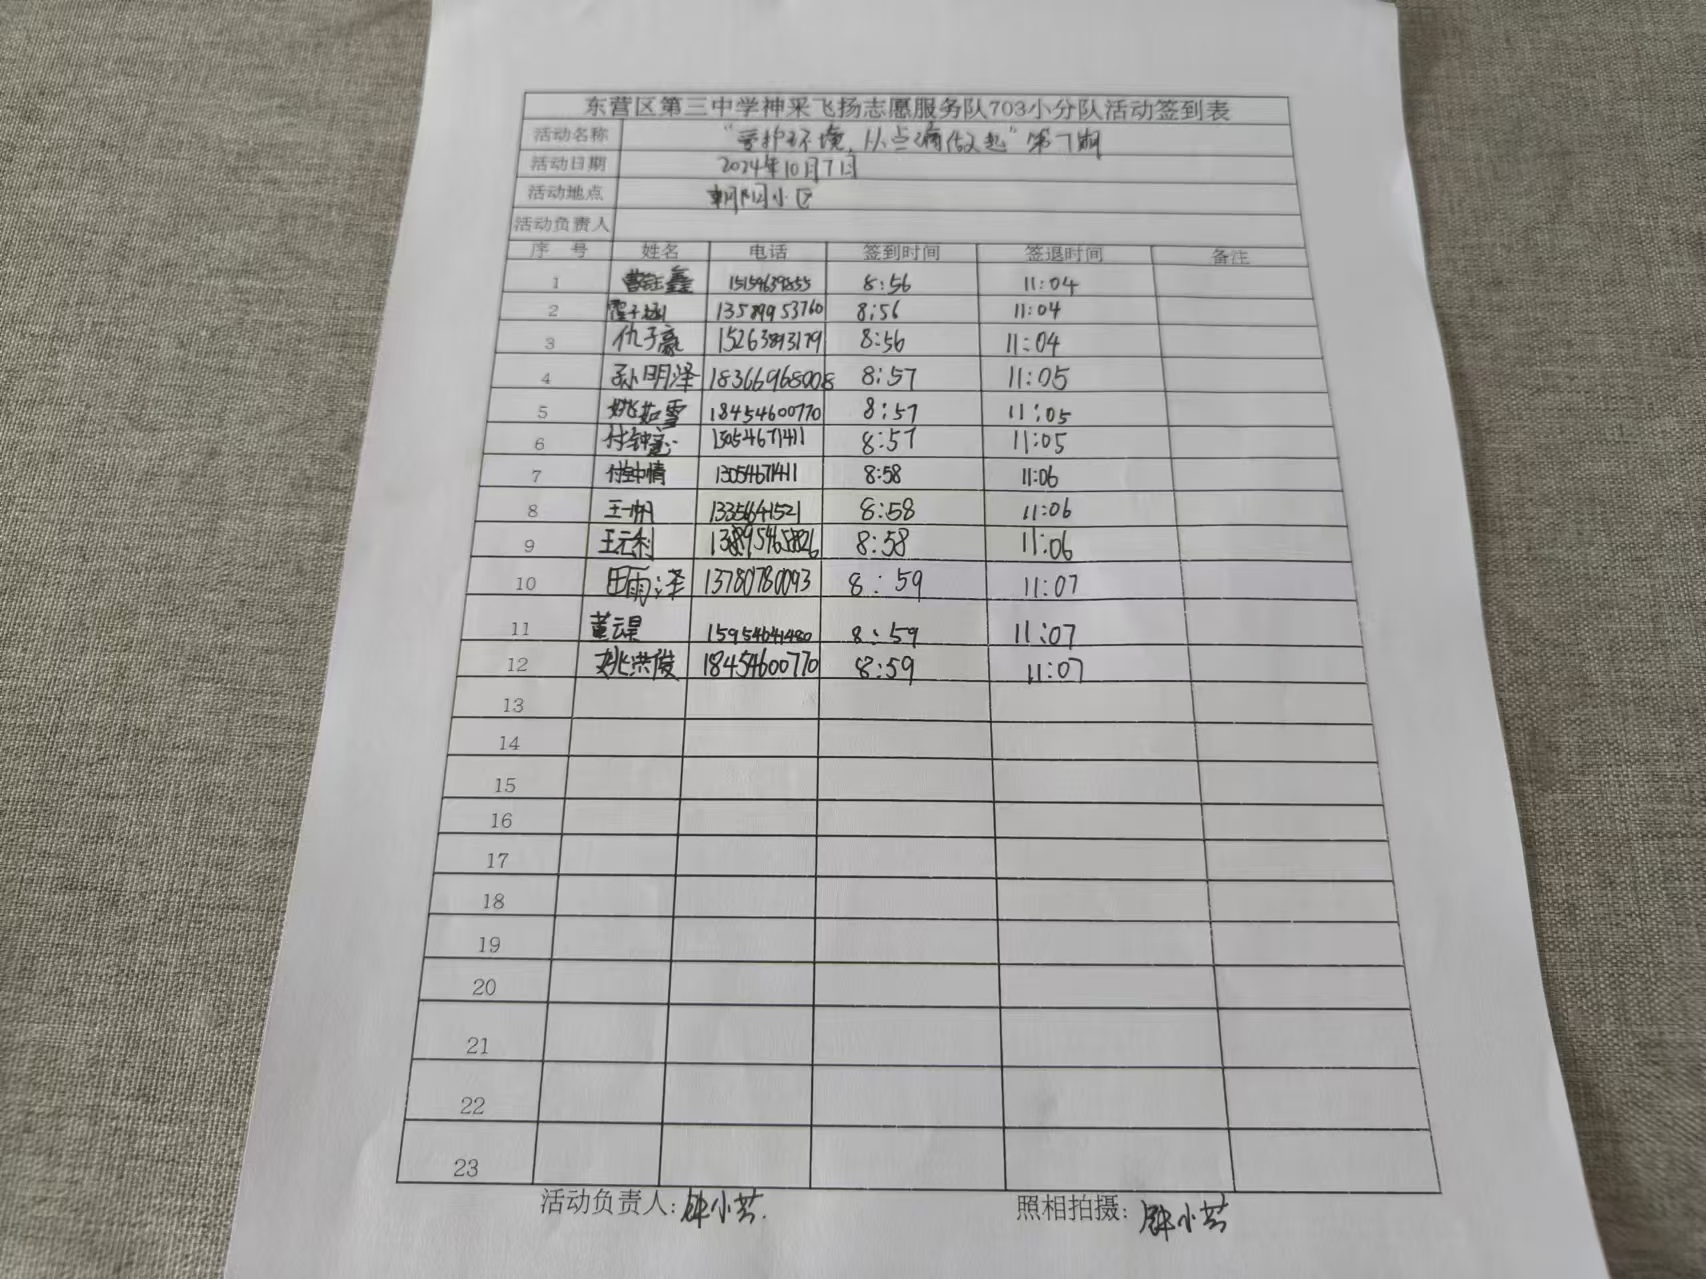 东营区第三中学神采飞扬志愿服务队703小分队活动签到表
活动名称 "爱护环境,从点滴做起"第7期
活动日期 2024年10月7日
活动地点 朝阳小区
活动负责人
序 号 姓名 电话 签到时间 签退时间 备注
1 15154639855 8:56 11:04
2 13589953760 8:56 11:04
3 仇子豪 15263893179 8:56 11:04
4 孙明泽 18366968008 8:57 11:05
5 姚茹雪 18454600770 8:57 11:05
6 13054671411 8:57 11:05
7 付钟情 13054671411 8:58 11:06
8 王一帆 1335641521 8:58 11:06
9 王元利 8:58 11:06
10 田雨泽 13780780093 8:59 11:07
11 董云昊 15954641480 8:59 11:07
12 姚洪俊 18454600770 8:59 11:07
13
14
15
16
17
18
19
20
21
22
23
活动负责人:钟小芸. 照相拍摄:钟小芸